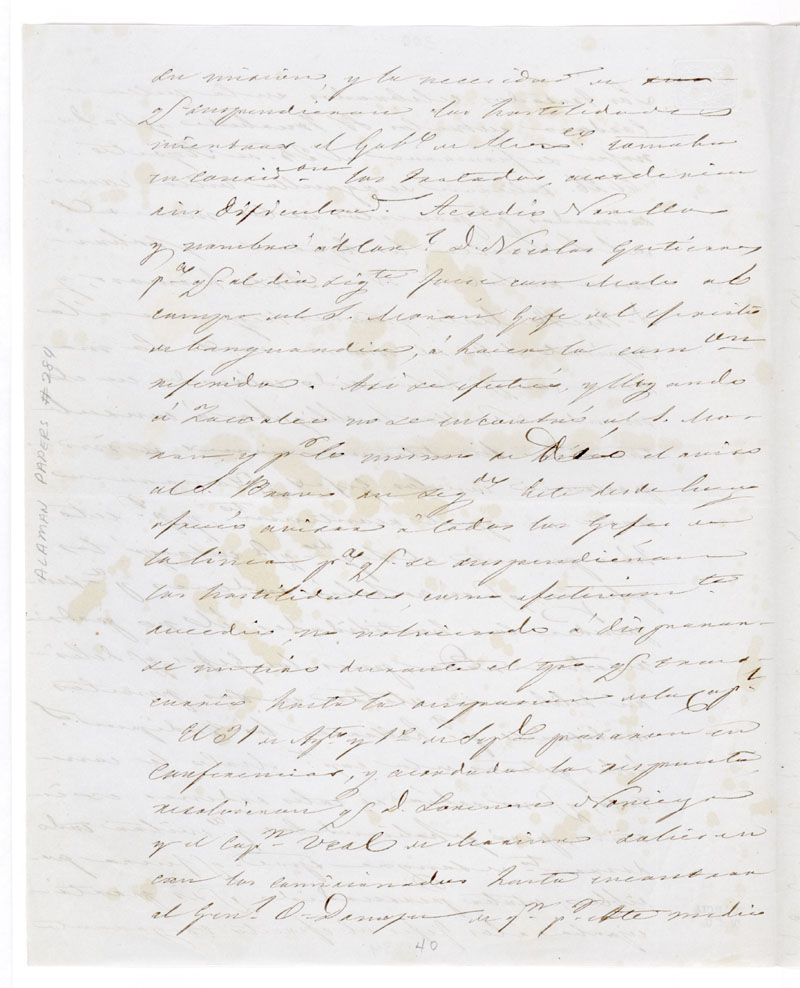 su mision, y la necesidad de
q.e suspendieran las hostilidades
mientras el Gob.o de Mex.co tomaba
en consid.on los tratados, accederia
sin dificultad. Accedió Novella
y nombró al Cor.l D. Nicolas Gutierres
p.a q.e al dia sig.te fuese con Malo al
campo del S. Moran Gefe del ejercito
de banguardia, á hacer la com.on
referida. Asi se efectuó, y llegando
á Zacalco no se encontró al S. Mo-
ran y p.r lo mismo se dió el aviso
al S. Bravo su seg.do Este desde luego
ofreció avisar á todos los Gefes de
la linea p.a q.e se suspendieran
las hostilidades, como efectivam.te
sucedió, no volviendo á dispararse
un tiro durante el tpo. q.e tras-
currió hasta la ocupacion de la Cap.l
El 31 de Ag.to y 1.o de Sept.e pasaron en
conferencias, y acordada la respuesta
resolvieron q.e D. Lorenzo Noriega
y el Cap.n Veal de Marina salieran
con los comisionados hasta encontrar
al Gen.l O-Donoju de q.n p.r este medio
40
ALAMAN PAPERS # 284